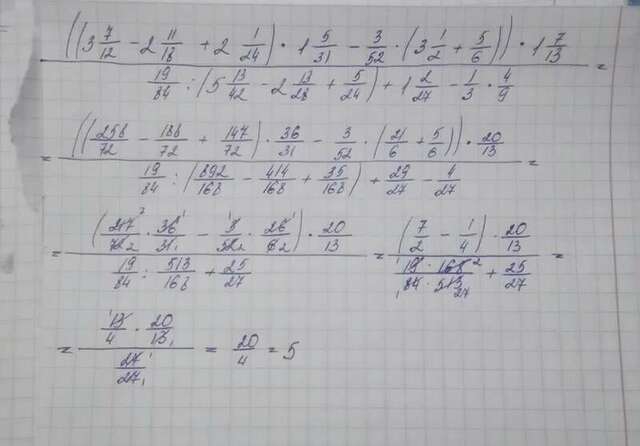 ((3 7/12 − 2 11/18 + 2 1/24) · 1 5/31 − 3/52 · (3 1/2 + 5/6)) · 1 7/13
19/84 : (5 13/42 − 2 13/28 + 5/24) + 1 2/27 − 1/3 · 4/9 =
= ((258/72 − 188/72 + 147/72) · 36/31 − 3/52 · (21/6 + 5/6)) · 20/13
19/84 : (892/168 − 414/168 + 35/168) + 29/27 − 4/27 =
= (217/72 · 36/31 − 3/52 · 26/6) · 20/13 = (7/2 − 1/4) · 20/13
19/84 : 513/168 + 25/27 19 · 168/84 · 513 + 25/27 =
= 13/4 · 20/13
27/27 = 20/4 = 5